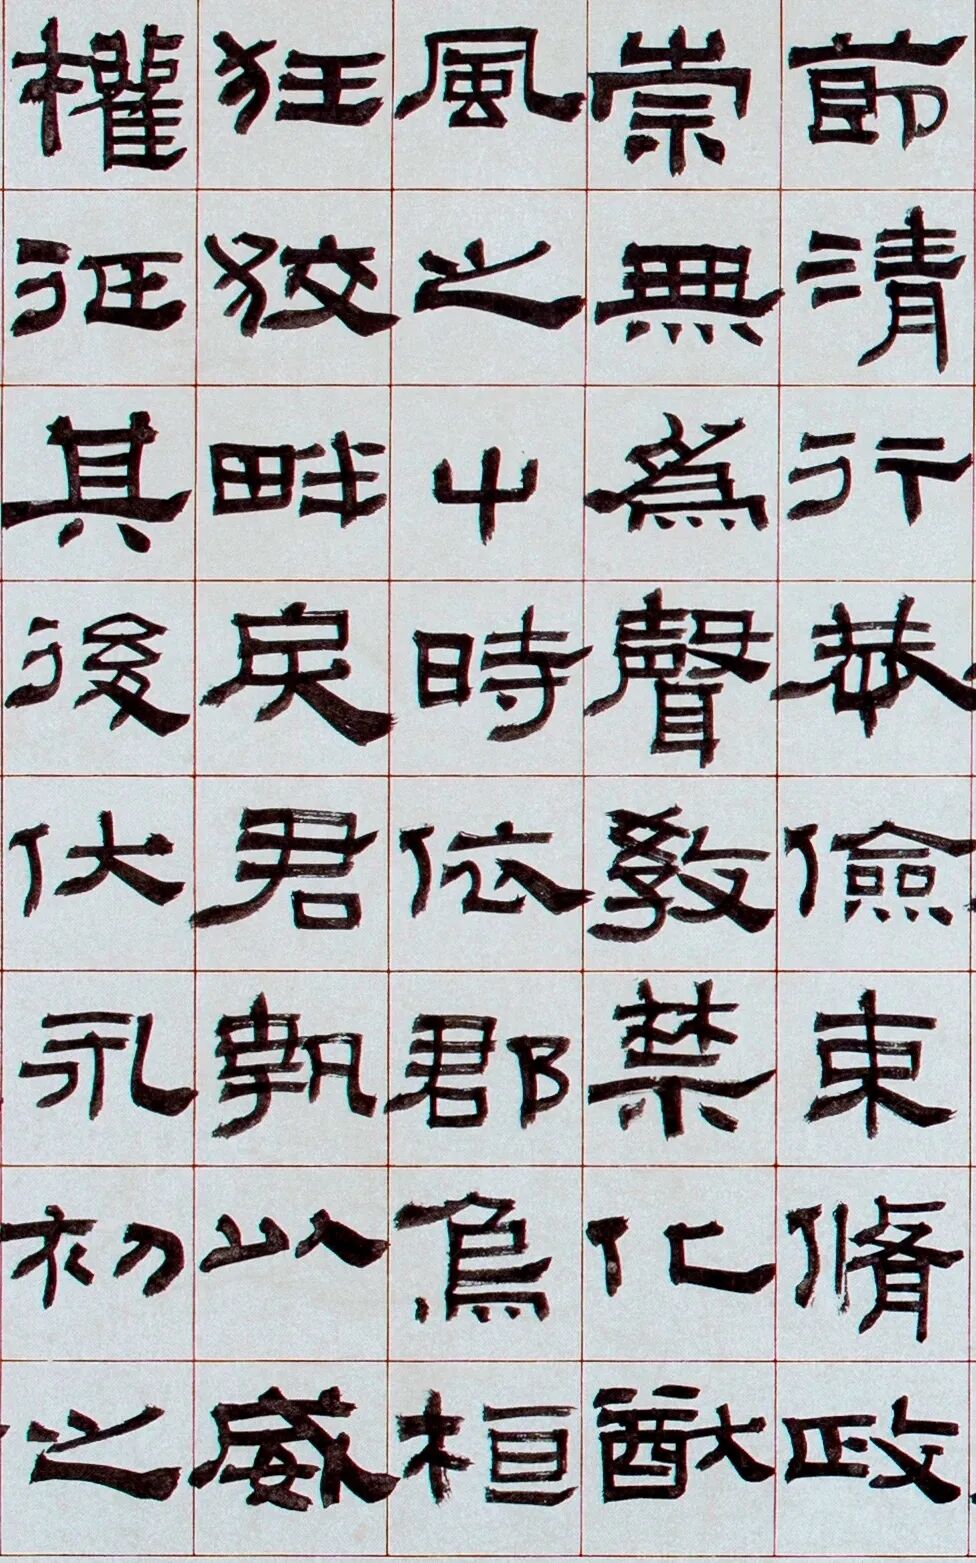 節清行恭儉束脩政
崇無為聲教禁化猷
風之屮時依郡烏桓
狂狡畔戾君執以威
權征其後伏永初之